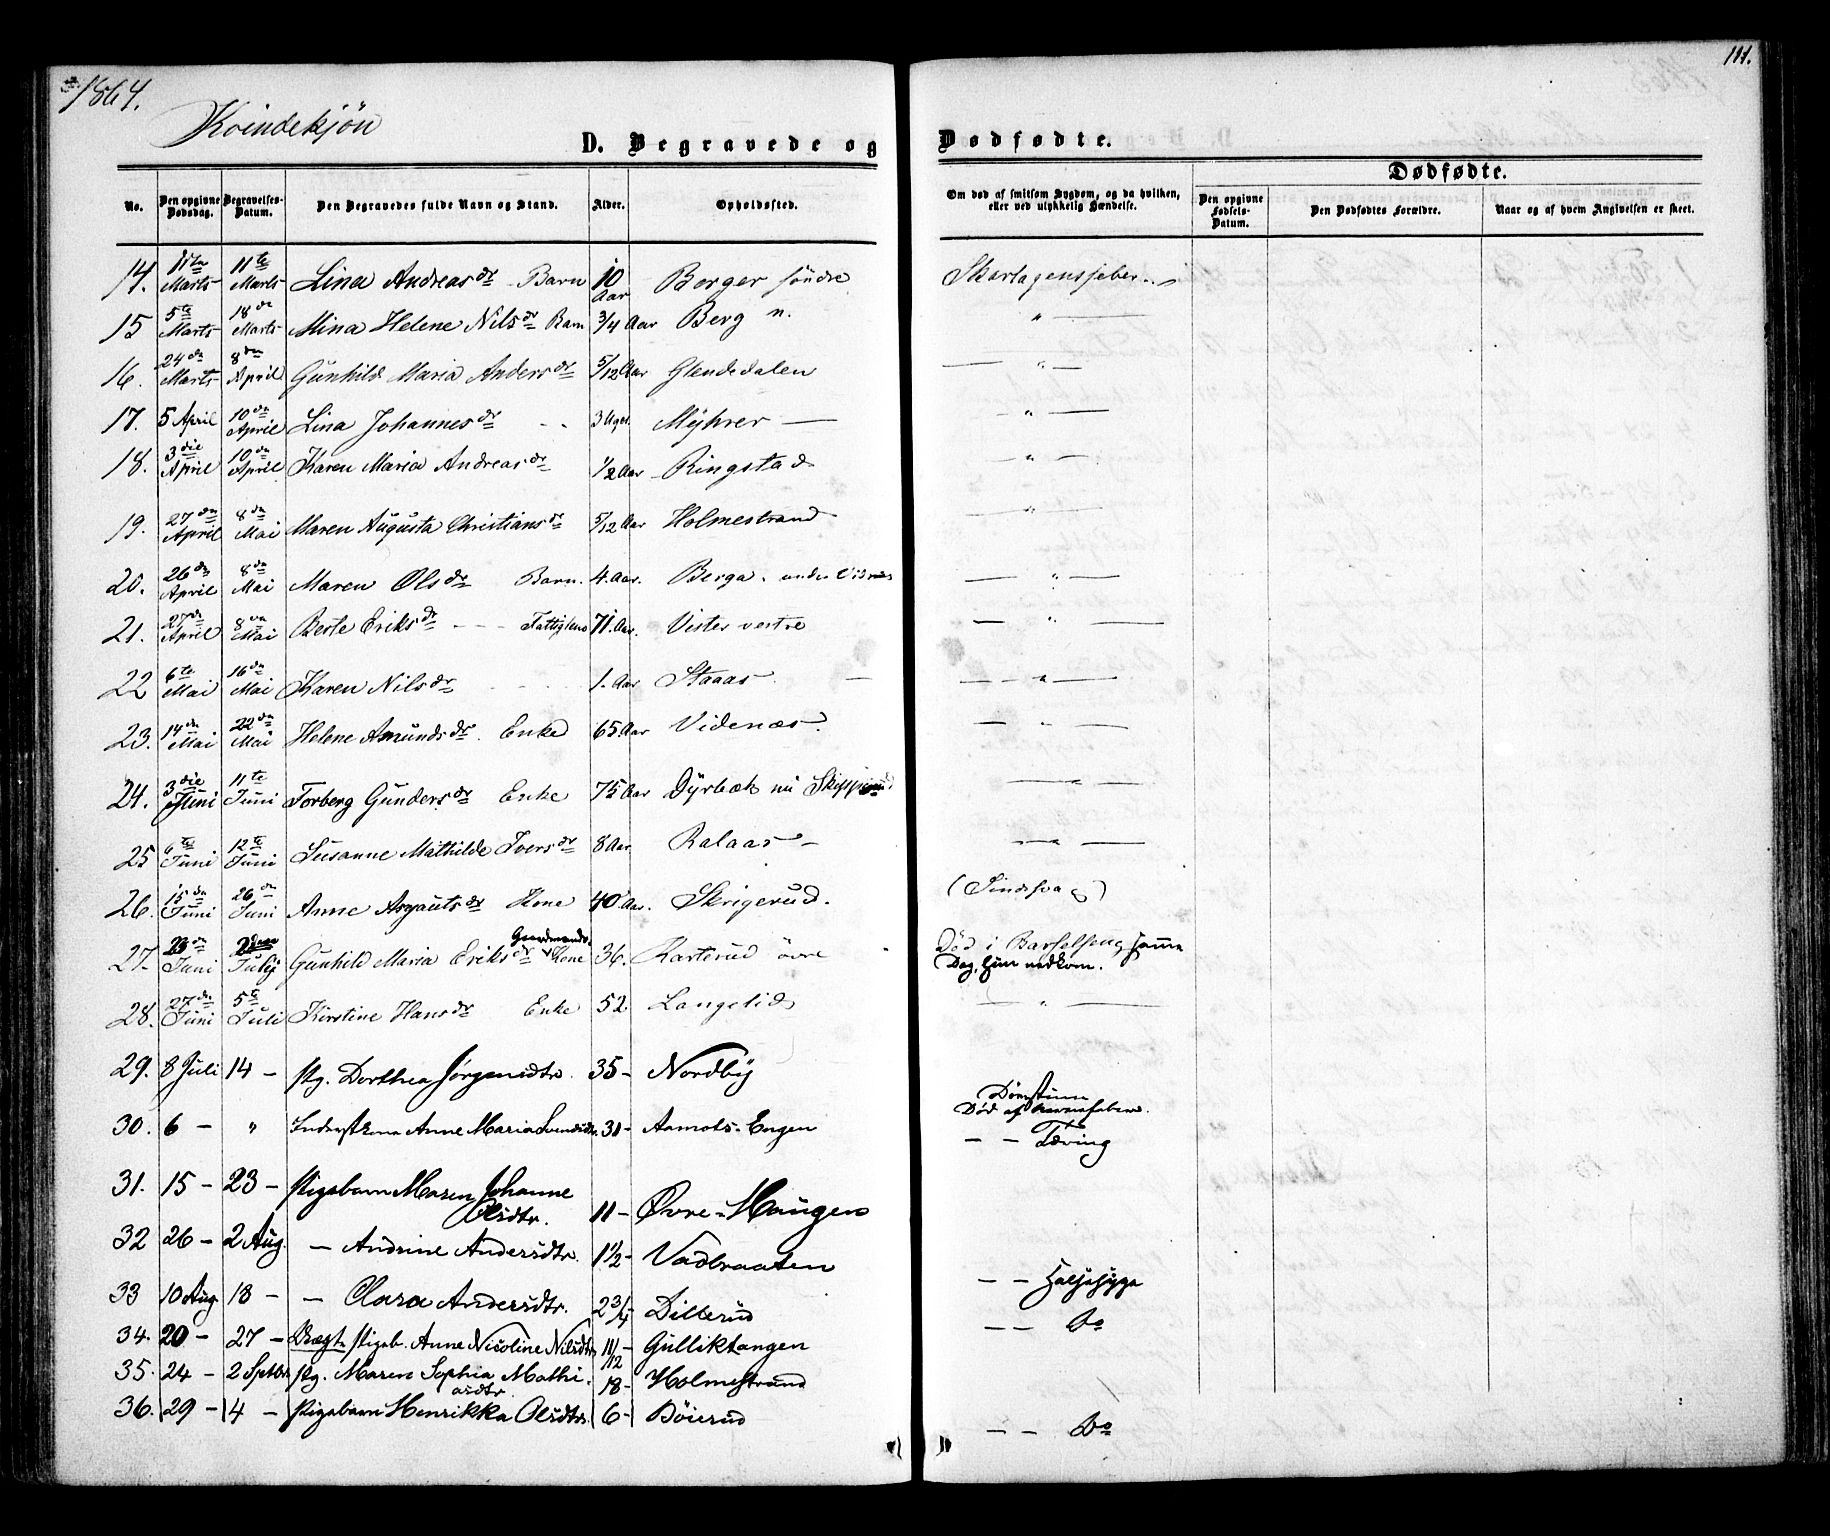 1864.
111.
Kvindekjøn
D. Begravede og Dødfødte.
Dødfødte.
No. Den opgivne Dødsdag. Begravelses-Datum. Den Begravedes fulde Navn og Stand. Alder. Opholdssted. Om død af smitsom Sygdom, og da hvilken, eller ved ulykkelig Hændelse. Den opgivne Fødsels-Datum. Den Dødfødtes Forældre. Naar og af hvem Angivelsen er skeet.
14. 11te Marts Lina Andreasdr Barn 10 Aar Borger søndre Skarlagensfeber
15 5te Marts 18de Marts Mina Helene Nilsdr Barn 3/4 Aar Berg n. "
16. 24de Marts 8de April Gunhild Maria Andersdr 5/12 Aar Glendedalen — " —
17. 5 April 10de April Lina Johannesdr 3 Uger Myhrer — — " —
18. 3die April 10de April Karen Maria Andreasdr 1/2 Aar Ringstad — " —
19. 27de April 8de Mai Maren Augusta Christiansdr 5/12 Aar Holmestrand — " —
20. 26de April 8de Mai Maren Olsdr Barn. 4. Aar. Berga. under — " —
21. 27de April 8de Mai Berte Eriksdr Fattiglem 71. Aar. Vister vestre — " —
22 6te Mai 16de Mai Karen Nilsdr 1. Aar Staaas — " —
23. 14de Mai 22de Mai Helene Amundsdr. Enke 65 Aar Videnæs. — " —
24. 3die Juni 11te Juni Torberg Gundersdr Enke 75 Aar Dyrbæk nu — " —
25 6te Juni 12te Juni Susanne Mathilde Iversdr 8 Aar Ralaas — — " —
26. 15de Juni 26de Juni Anne Asgautsdr Kone 40 Aar. Skrigerud. (Sindsvag)
27. 23de Juni Julij Gunhild Maria Eriksdr Gaardmands Kone 36. Karterud øvre Død i Barselseng samme
Dag, hun nedkom.
28. 27de Juni 5te Juli Kirstine Hansdr Enke 52 Langelid — " —
29. 8 Juli 14 — Pg. Dorthea Jørgensdtr. 35 — Nordby
30. 6 — " Anne Maria Svendsdtr. 31 — Aamots-Engen Død af
— — Tæring
31. 15 — 23 — Pigebarn Maren Johanne
Olsdtr. 11 — Øvre-Haugen
32 26 — 2 Aug. — Andrine Andersdtr. 1 1/2 — Vadbraaten
33 10 Aug. 18 — — Clara Andersdtr. 2 3/4 Dillerud — — Halssyge
34. 20 — 27 — Uægt. Pigeb. Anne Nicoline Nilsdtr 11/12 — Gulliktangen — — Do
35. 24 — 2 Septbr. Pg. Maren Sophia Mathi-
asdtr. 18 — Holmestrand
36. 29 — 4 — Pigebarn Henrikka Olsdtr. 6 — Böierud — — Do